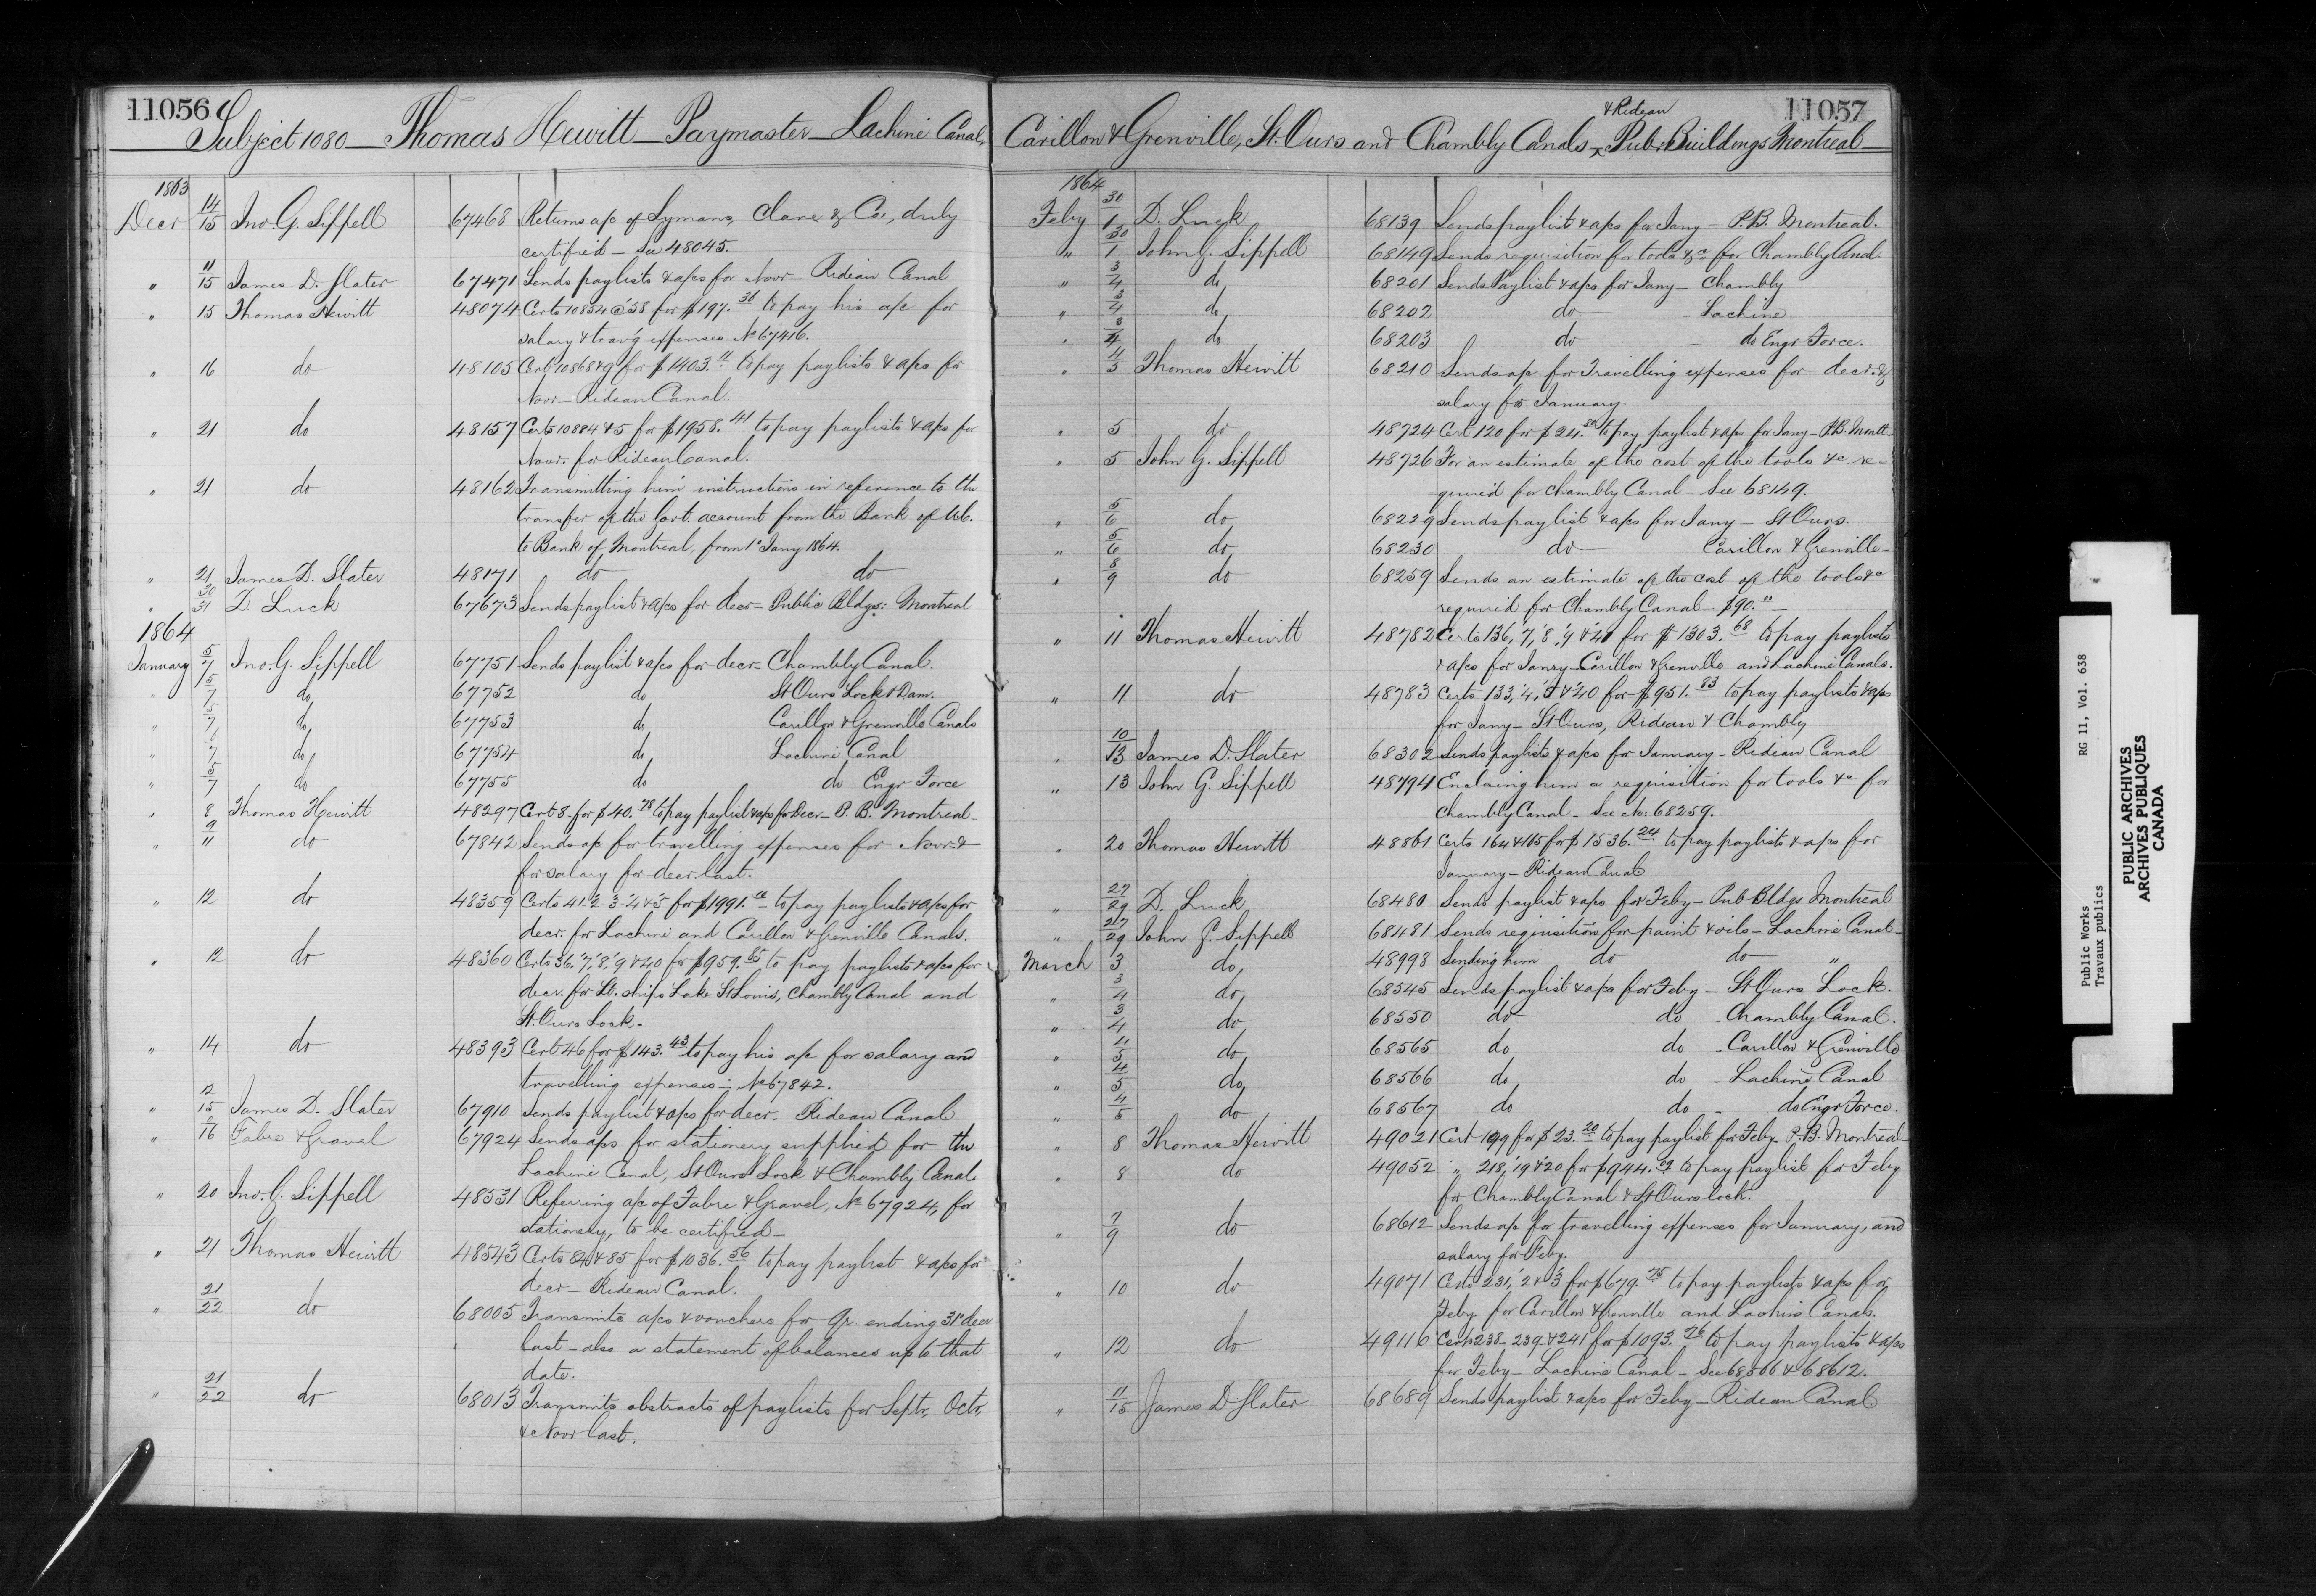 11056
Subject 1080 — Thomas Hewitt — Paymaster — Lachine Canal,
1863
Decr 14/15 Jno. G. Sippell 67468 Returns a/c of Lymans, Clare & Co, duly
certified — See 48045.
" 11/15 James D. Slater 67471 Sends paylists & a/cs for Novr — Rideau Canal
" 15 Thomas Hewitt 48074 Certs 10854 @ '58 for $197.36 to pay his a/c for
salary & trav'g expenses. No 67416.
" 16 do 48105 Certs 10868 & 9 for $1403.11 to pay paylists & a/cs for
Novr — Rideau Canal.
" 21 do 48157 Certs 10884 & 5 for $1958.41 to pay paylists & a/cs for
Novr. for Rideau Canal.
" 21 do 48162 Transmitting him instructions in reference to the
transfer of the Govt. account from the Bank of U.C.
to Bank of Montreal, from 1st Jany 1864.
" 21 James D. Slater 48171 do do
" 30/31 D. Luck 67673 Sends paylist & a/cs for decr — Public Bldgs: Montreal
1864
January 5/7 Jno. G. Sippell 67751 Sends paylist & a/cs for decr — Chambly Canal.
" 5/7 do 67752 do St Ours Lock & Dam.
" 5/7 do 67753 do Carillon & Grenville Canals
" 7 do 67754 do Lachine Canal
" 5/7 do 67755 do do Engr Force
" 8 Thomas Hewitt 48297 Cert 8 for $40.78 to pay paylist & a/cs for Decr — P. B. Montreal —
" 9/11 do 67842 Sends a/c for travelling expenses for Novr &
for salary for decr. last.
" 12 do 48359 Certs 41. 2. 3. '4 & '5 for $1991. to pay paylists & a/cs for
decr. for Lachine and Carillon & Grenville Canals.
" 12 do 48360 Certs 36, '7, '8, '9 & 40 for $959.65 to pay paylists & a/cs for
decr. for Lt. ships Lake St Louis, Chambly Canal and
St. Ours Lock —
" 14 do 48393 Cert 46 for $143.43 to pay his a/c for salary and
travelling expenses — No 67842.
" 12/15 James D. Slater 67910 Sends paylist & a/cs for decr. Rideau Canal
" 16 Fabre & Gravel 67924 Sends a/cs for stationery supplied for the
Lachine Canal, St Ours Lock & Chambly Canal.
" 20 Jno. G. Sippell 48531 Referring a/c of Fabre & Gravel, No 67924, for
stationery, to be certified —
" 21 Thomas Hewitt 48543 Certs 84 & 85 for $1036.56 to pay paylist & a/cs for
decr — Rideau Canal.
" 21/22 do 68005 Transmits a/cs & vouchers for qr. ending 31st decr
last — also a statement of balances up to that
date.
" 21/22 do 68013 Transmits abstracts of paylists for Septr, Octr,
& Novr last.
11057
Carillon & Grenville, St. Ours and Chambly Canals — & Rideau Pub. Buildings Montreal —
1864
Feby 30/1 D. Luck 68139 Sends paylist & a/cs for Jany — P.B. Montreal.
" 30/1 John G. Sippell 68149 Sends requisition for tools &c for Chambly Canal.
" 3/4 do 68201 Sends Paylist & a/cs for Jany — Chambly
" 3/4 do 68202 do — Lachine
" 3/4 do 68203 do — do Engr Force.
" 4/5 Thomas Hewitt 68210 Sends a/c for Travelling expenses for decr. &
salary for January.
" 5 do 48724 Cert 120 for $24.50 to pay paylist & a/cs for Jany — P.B. Montl
" 5 John G. Sippell 48726 For an estimate of the cost of the tools &c re-
-quired for Chambly Canal — See 68149.
" 5/6 do 68229 Sends paylist & a/cs for Jany — St Ours.
" 5/6 do 68230 do Carillon & Grenville —
" 8/9 do 68259 Sends an estimate of the cost of the tools &c
required for Chambly Canal — $90.
" 11 Thomas Hewitt 48782 Certs 136, '7, '8, '9 & '41 for $1303.68 to pay paylists
& a/cs for Janry — Carillon & Grenville and Lachine Canals.
" 11 do 48783 Certs 133, '4, '5 & '40 for $951.83 to pay paylists & a/cs
for Jany — St Ours, Rideau & Chambly
" 10/13 James D. Slater 68302 Sends paylists & a/cs for January — Rideau Canal
" 13 John G. Sippell 48794 Enclosing him a requisition for tools &c for
Chambly Canal — See No: 68259.
" 20 Thomas Hewitt 48861 Certs 164 & 165 for $1536.24 to pay paylists & a/cs for
January — Rideau Canal
" 27/29 D. Luck 68480 Sends paylist & a/cs for Feby — Pub Bldgs Montreal
" 27/29 John G. Sippell 68481 Sends requisition for paint & oils — Lachine Canal —
March 3 do 48998 Sending him do do "
" 3/4 do 68545 Sends paylist & a/cs for Feby — St Ours Lock.
" 3/4 do 68550 do do — Chambly Canal.
" 4/5 do 68565 do do — Carillon & Grenville
" 4/5 do 68566 do do — Lachine Canal
" 4/5 do 68567 do do — do Engr Force.
" 8 Thomas Hewitt 49021 Cert 199 for $23.20 to pay paylist for Feby — P.B. Montreal —
" 8 do 49052 " 218, '19 & '20 for $944.22 to pay paylist for Feby
for Chambly Canal & St Ours lock.
" 7/9 do 68612 Sends a/c for travelling expenses for January, and
salary for Feby.
" 10 do 49071 Certs 231, '2 & '3 for $679.75 to pay paylists & a/cs for
Feby for Carillon & Grenville and Lachine Canals.
" 12 do 49116 Certs 238 – 239 & 241 for $1093.76 to pay paylists & a/cs
for Feby — Lachine Canal — See 68566 & 68612.
" 11/15 James D Slater 68689 Sends paylist & a/cs for Feby — Rideau Canal
Public Works RG 11, Vol. 638
Travaux publics
PUBLIC ARCHIVES
ARCHIVES PUBLIQUES
CANADA